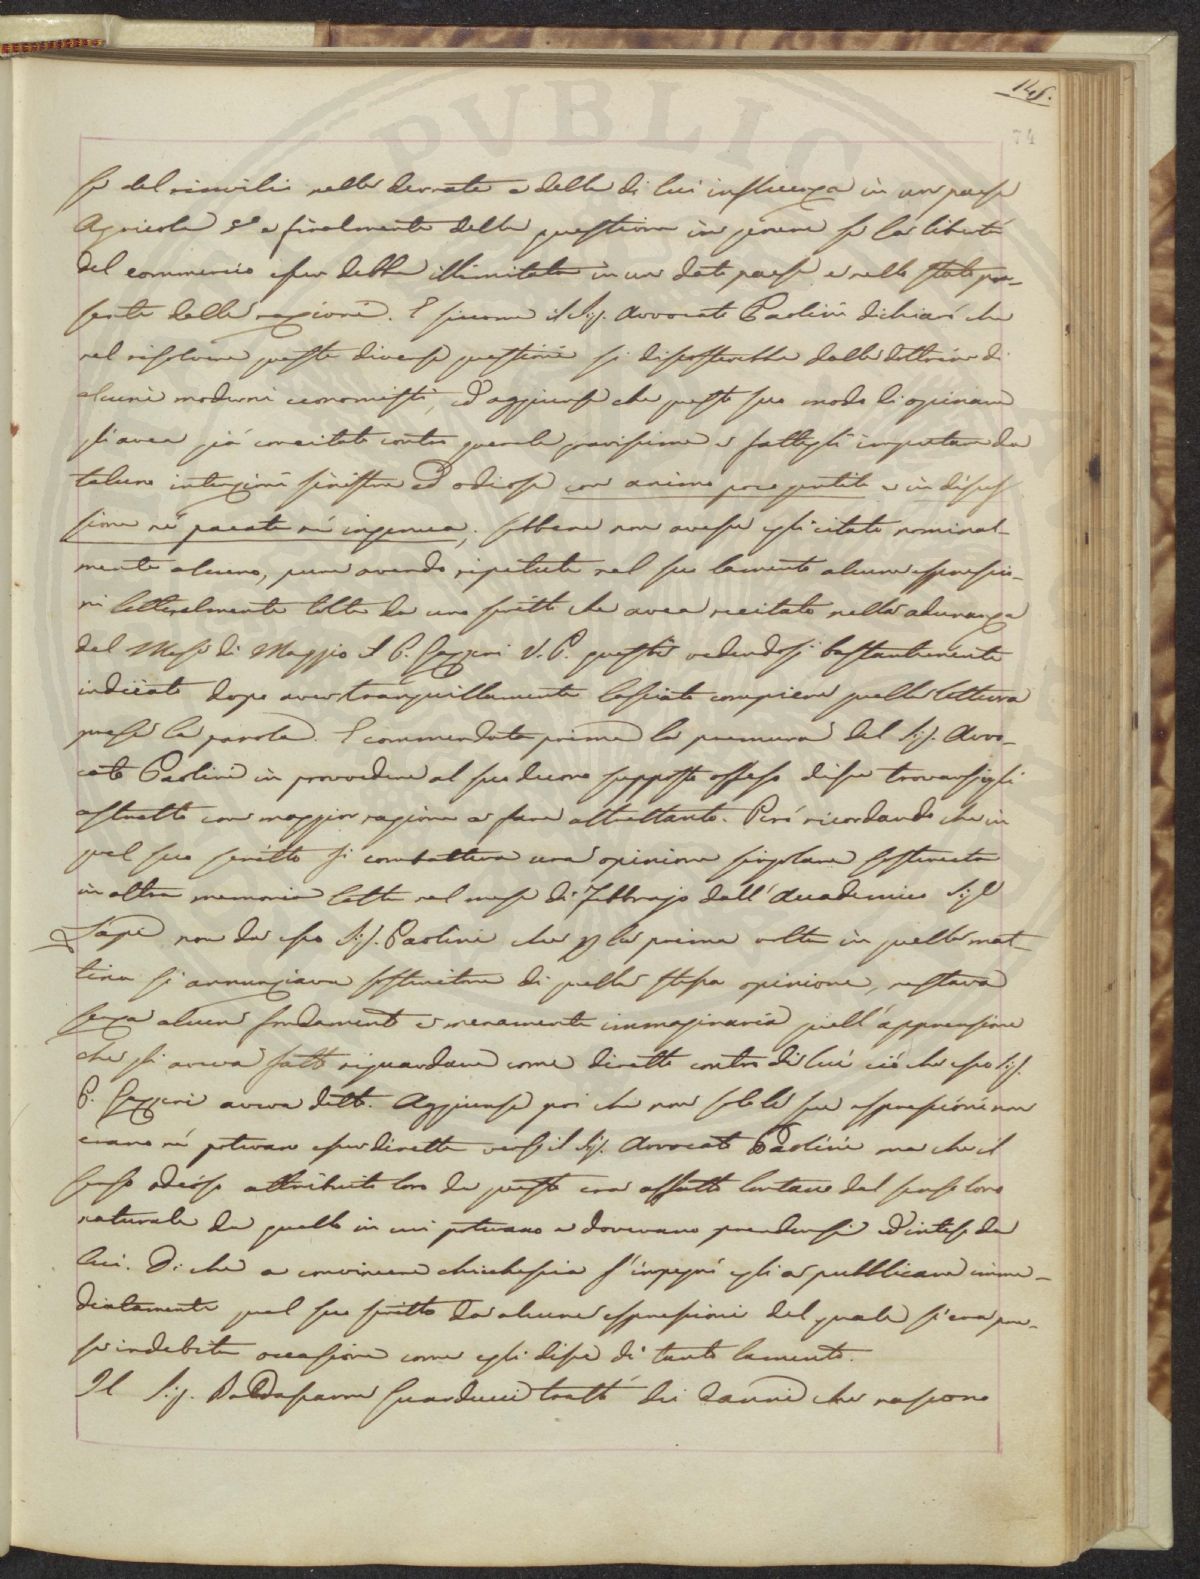 PVBLIC
148.
74
se del rinvilio nelle derrate e della di lui influenza in un paese
Agricola &c e finalmente della questione in genere se la libertà
del commercio esser debba illimitata in un dato paese e nello stato pre-
sente delle nazioni. E siccome il Sig. Avvocato Paolini dichiarò che
nel risolvere queste diverse questioni si discosterebbe dalle dottrine di
alcuni moderni economisti, ed aggiunse che questo suo modo di opinare
gli avea già concitato contro querele gravissime e fattegli imputare da
taluno intenzioni sinistre ed odiose con animo poco gentile e in discus
sione nè pacata nè ingenua, sebbene non avesse egli citato nominal-
mente alcuno, pure avendo ripetute nel suo lamento alcune espressio-
ni letteralmente tolte da uno scritto che avea recitato nella adunanza
del Mese di Maggio il P. Gazzeri V. P. questi vedendosi bastantemente
indicato dopo aver tranquillamente lasciato compiere quella lettura
prese la parola. E commendata prima la premura del Sig. Avvo-
cato Paolini in provvedere al suo decoro supposto offeso disse trovarsi egli
astretto con maggior ragione a fare altrettanto. Però ricordando che in
quel suo scritto si combatteva una opinione singolare sostenuta
in altra memoria letta nel mese di Febbrajo dall'Accademico Sigr
Lapi non da esso Sig. Paolini che p la prima volta in quella mat
tina si annunziava sostenitore di quella stessa opinione, restava
senza alcun fondamento e meramente immaginaria quell'apprensione
che gli aveva fatto riguardare come diretto contro di lui ciò che esso Sig.
P. Gazzeri aveva detto. Aggiunse poi che non solo le sue espressioni non
erano nè potevano esser dirette verso il Sig. Avvocato Paolini ma che il
senso odioso attribuito loro da questo era affatto lontano dal senso loro
naturale da quello in cui potevano e dovevano prendersi ed intese da
lui. Di che a convincere chicchessia s'impegnò egli a pubblicare imme-
diatamente quel suo scritto da alcune espressioni del quale si era pre-
so indebita occasione come egli disse di tanto lamento.
Il Sig. Baldassarre Guarducci trattò dei danni che nascono